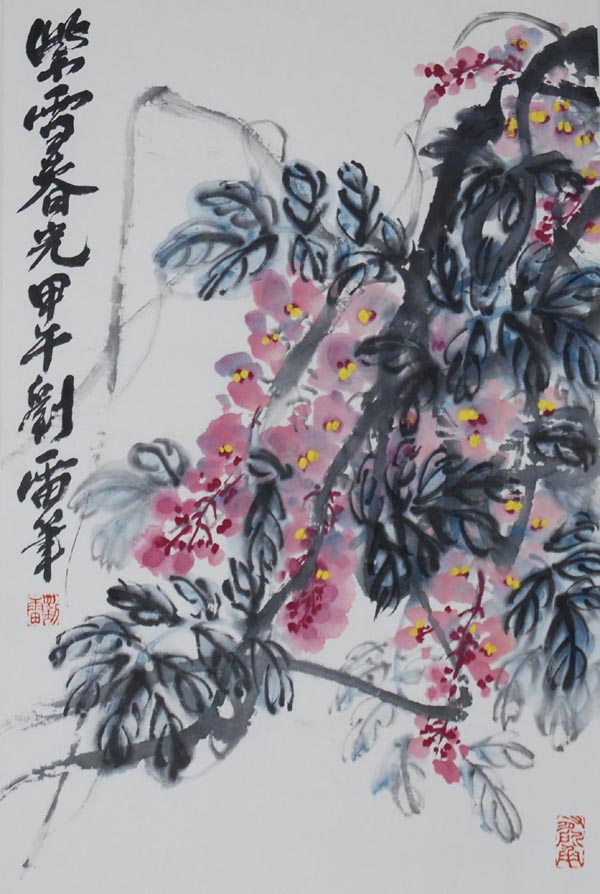 紫雪春光甲午劉雷筆
劉雷